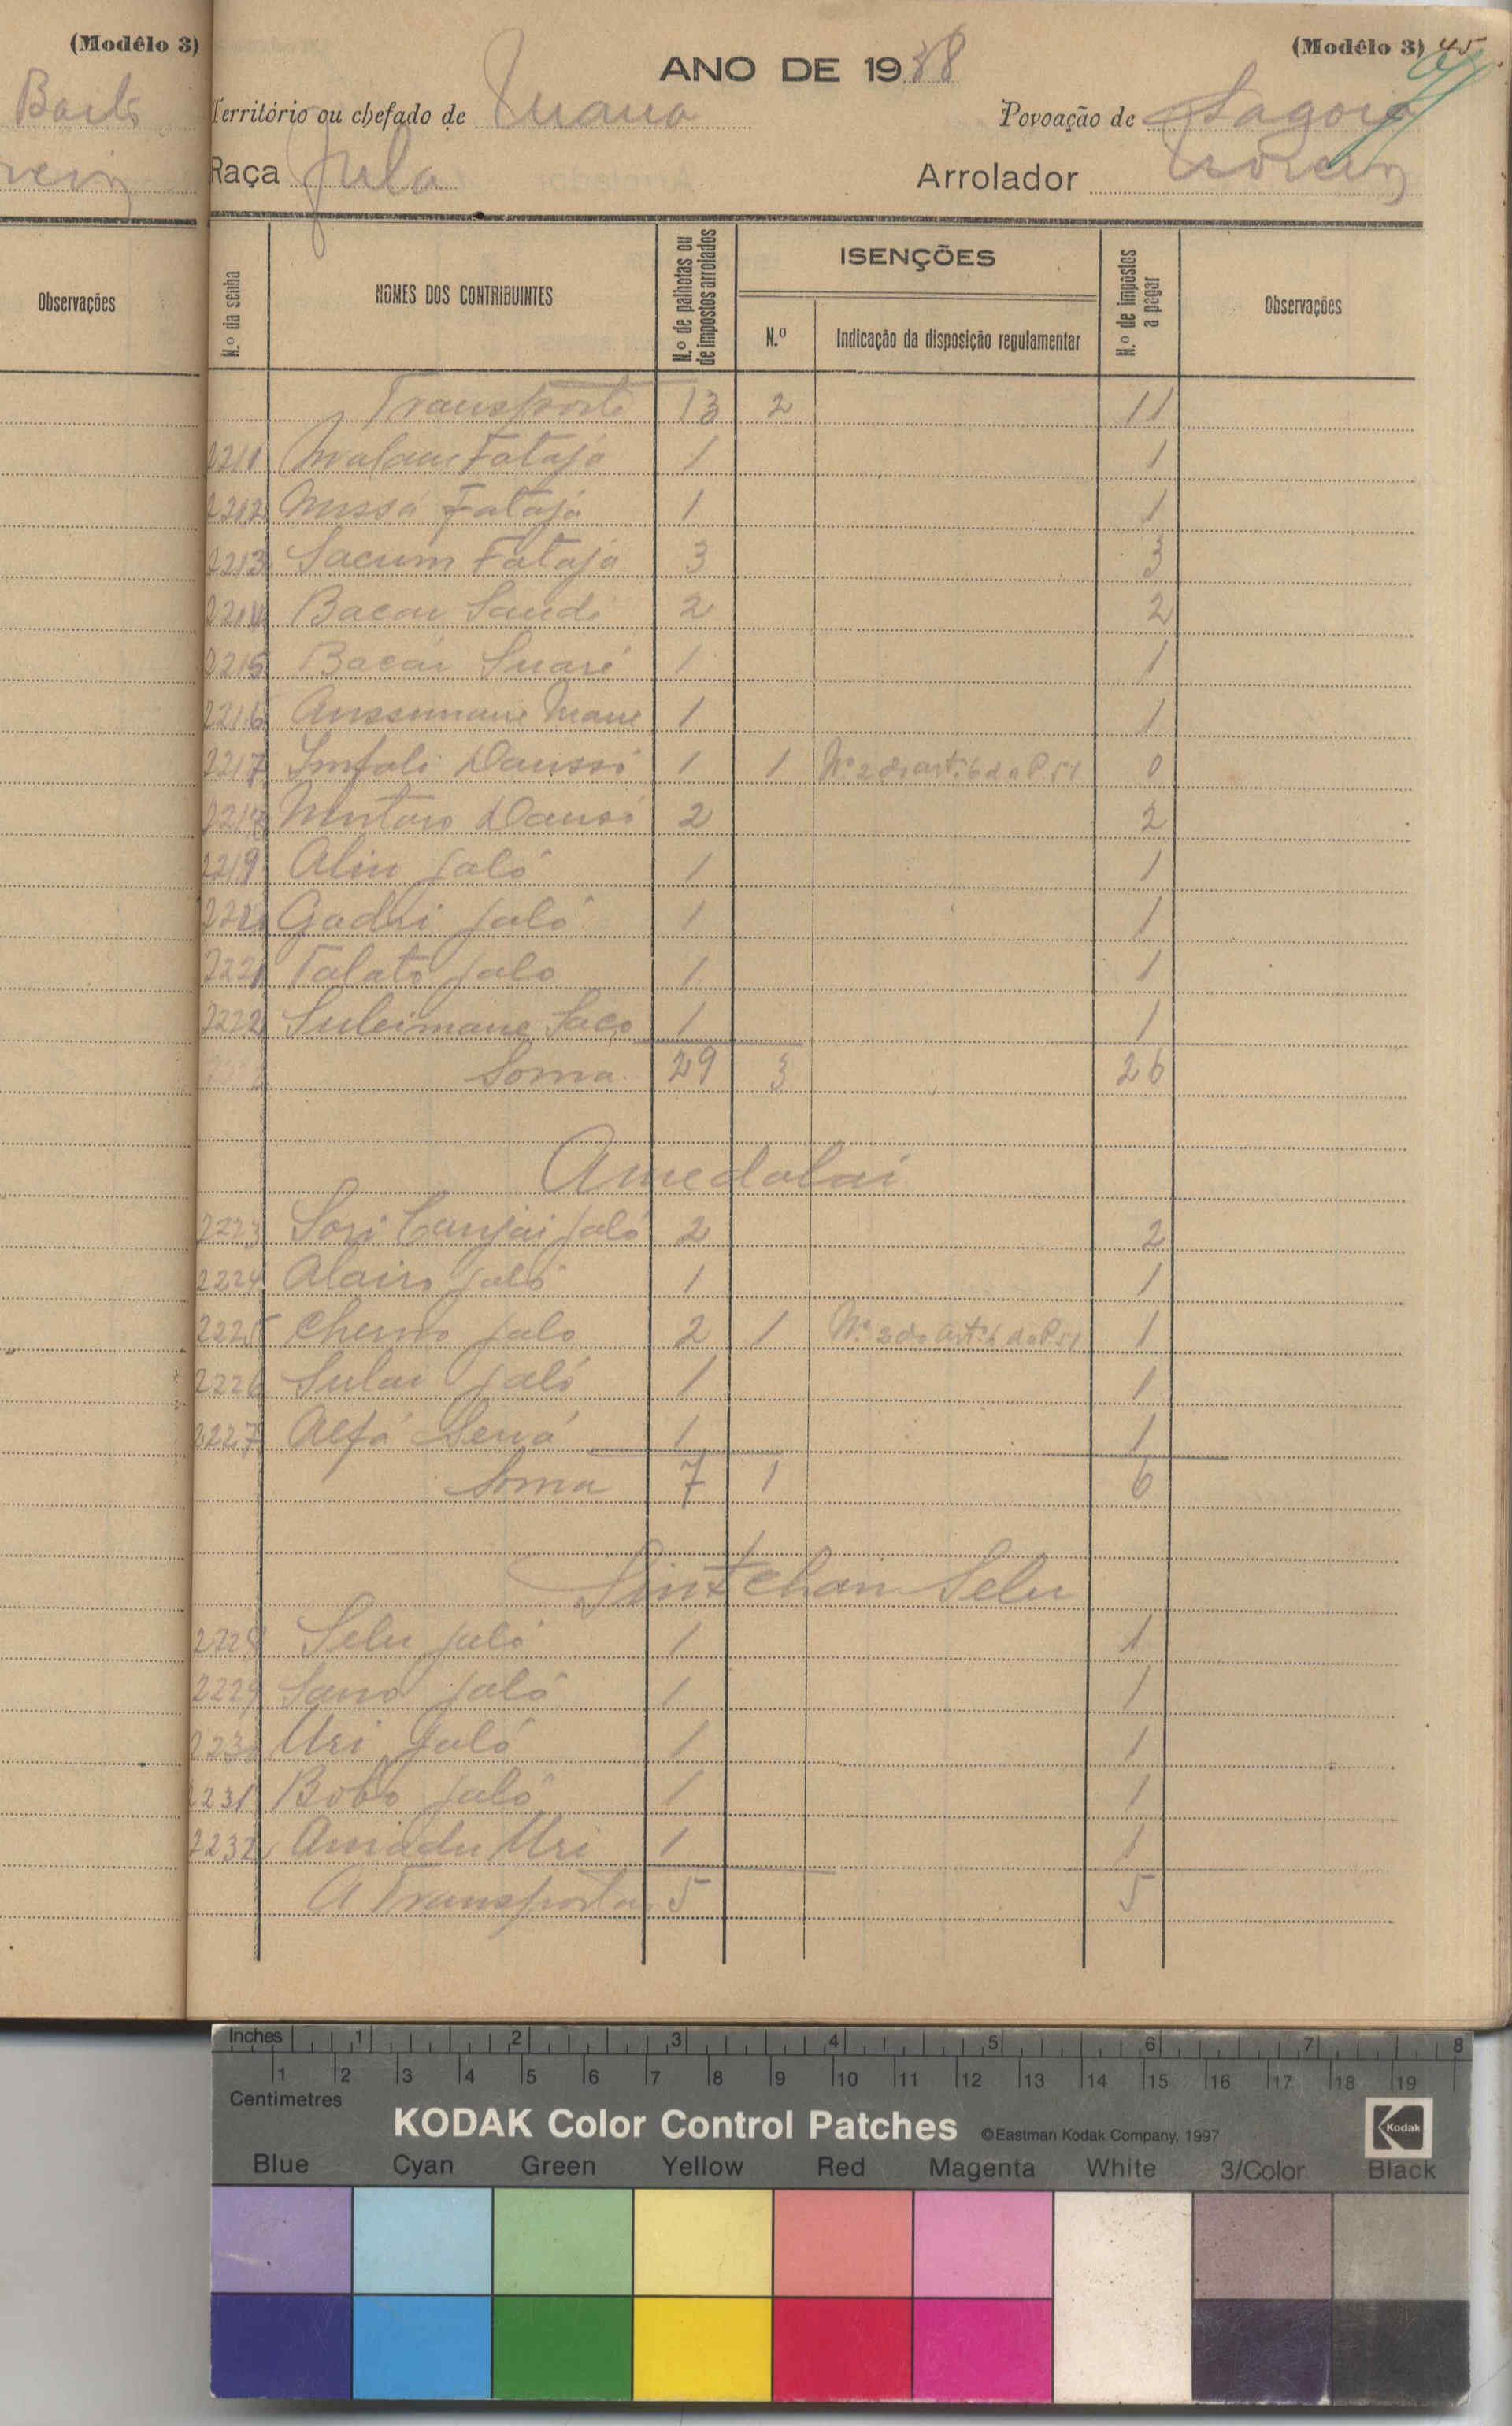 (Modêlo 3)
Observações
(Modêlo 3) 45
ANO DE 1938
Território ou chefado de
Povoação de
Raça Fula
Arrolador
N.º da senha
NOMES DOS CONTRIBUINTES
N.º de palhotas ou de impostos arrolados
ISENÇÕES
N.º
Indicação da disposição regulamentar
N.º de impostos a pagar
Observações
Transporte 13 2 11
2211 Fataja 1 1
2212 Mussá Fataja 1 1
2213 Sacum Fataja 3 3
2214 Bacar 2 2
2215 Bacár Suaré 1 1
2216 Anssumane Mane 1 1
2217 1 1 Nº 2 do art. 6 do P 51 0
2 2
2219 Aliu Jaló 1 1
Gadri Jaló 1 1
2221 Talato Jalo 1 1
2222 Suleimane Saco 1 1
Soma 29 3 26
Amedalai
2223 Sori Canjai Jaló 2 2
2224 Jaló 1 1
2225 Cherno Jalo 2 1 Nº 2 do Art. 6 do P 51 1
2226 Sulai Jaló 1 1
2227 Alfá 1 1
Soma 7 1 6
Sintchan Selu
2228 Selu Jaló 1 1
2229 Sano Jaló 1 1
Uri Jaló 1 1
2231 Bobo Jaló 1 1
2232 Amadu Uri 1 1
A Transportar 5 5
Inches 1 2 3 4 5 6 7 8
1 2 3 4 5 6 7 8 9 10 11 12 13 14 15 16 17 18 19
Centimetres
KODAK Color Control Patches ©Eastman Kodak Company, 1997 Kodak
Blue Cyan Green Yellow Red Magenta White 3/Color Black